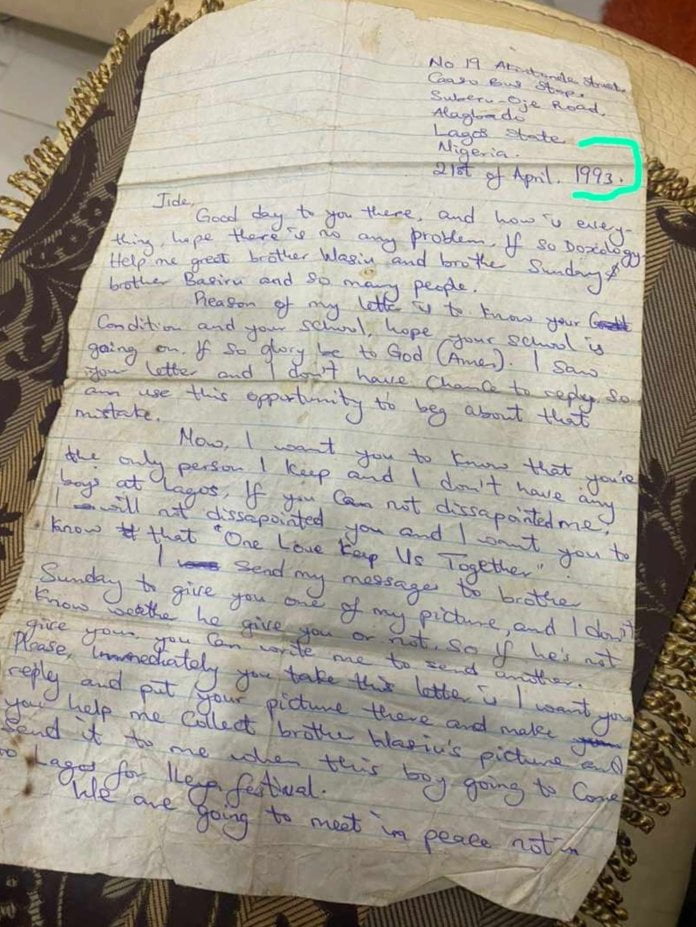 No 19 Akintonde Street,
Caaso Bus Stop,
Suberu-Oje Road,
Alagbado
Lagos State
Nigeria.
21st of April. 1993.
Jide,
Good day to you there, and how is every-
thing, hope there is no any problem, If so Doxology
Help me greet brother Wasiu and brothe Sunday &
brother Basiru and so many people.
Reason of my letter is to know your
Condition and your school, hope your school is
going on. If so glory be to God (Amen). I saw
your letter and I don't have chance to reply, so
am use this opportunity to beg about that
mistake.
Now, I want you to know that you're
the only person I keep and I don't have any
boys at Lagos, If you can not dissapointed me,
I will not dissapointed you and I want you to
know that "One Love Keep Us Together".
I send my message to brother
Sunday to give you one of my picture, and I don't
know weathe he give you or not, so if he's not
give you, you can write me to send another.
Please, Immediately you take this letter is I want you
reply and put your picture there and make
you help me collect brother Wasiu's picture and
send it to me when this boy going to come
to Lagos for festival.
We are going to meet in peace not in